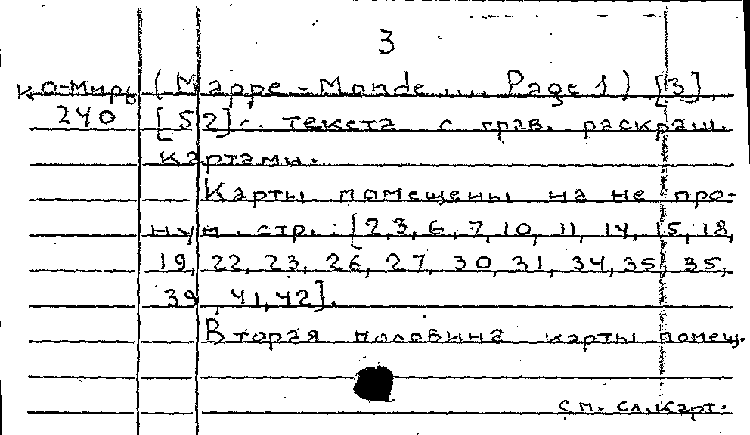 3
Ко-Миръ (Mappe-Monde .... Page 1) [3]
240 [52] с. текста с грав. раскраш.
картами.
Карты помещены на не про-
нум. стр.: [2,3,6,7,10,11,14,15,18,
19,22,23,26,27,30,31,34,35,35,
39,41,42].
Вторая половина карты помещ.
см. сл. карт.